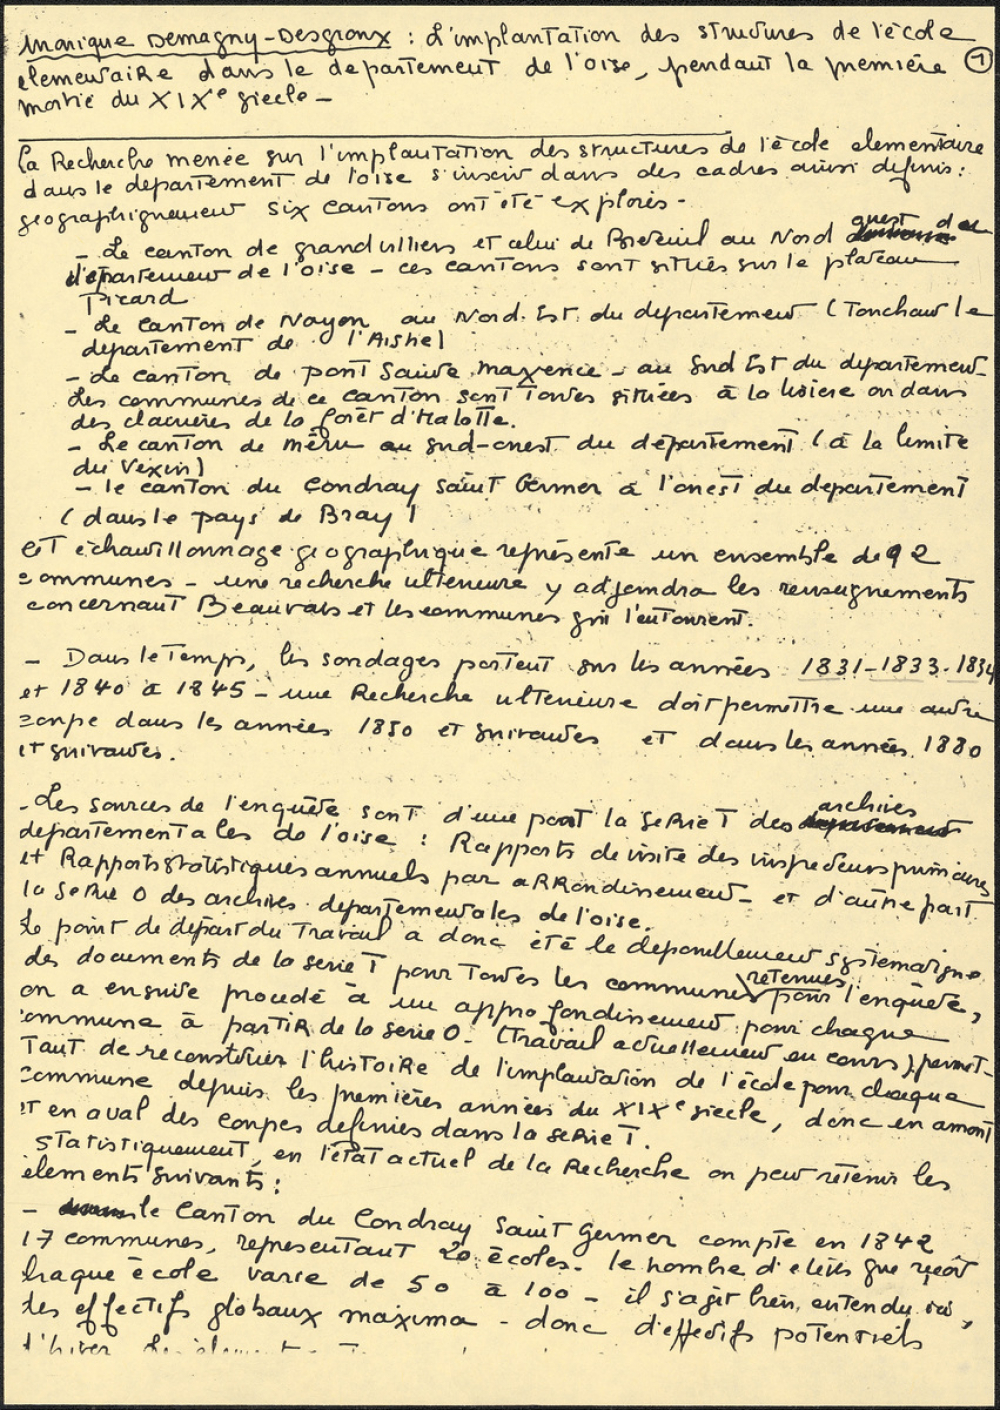 Monique Demagny-Desgroux : L'implantation des structures de l'école
élémentaire dans le département de l'Oise, pendant la première ①
moitié du XIXe siècle -
La Recherche menée sur l'implantation des structures de l'école élémentaire
dans le département de l'Oise s'inscrit dans des cadres ainsi définis :
géographiquement six cantons ont été explorés -
- Le canton de grandvilliers et celui de Breteuil au Nord ouest du
département de l'Oise - ces cantons sont situés sur le plateau
Picard
- Le canton de Noyon au Nord. Est du département (Touchant le
département de l'Aisne)
- Le canton de pont Sainte Maxence - au Sud Est du département -
Les communes de ce canton sont toutes situées à la lisière ou dans
des clairières de la forêt d'Halatte.
- Le canton de méru au sud-ouest du département (à la limite
du Vexin)
- le canton du Coudray Saint Germer à l'ouest du département
(dans le pays de Bray)
Cet échantillonnage géographique représente un ensemble de 92
communes - une recherche ultérieure y adjoindra les renseignements
concernant Beauvais et les communes qui l'entourent.
- Dans le Temps, les sondages portent sur les années 1831-1833-1834
et 1840 à 1845 - une Recherche ultérieure doit permettre une autre
coupe dans les années 1850 et suivantes et dans les années 1880
et suivantes.
- Les sources de l'enquête sont d'une part la série T des archives
départementales de l'Oise : Rapports de visite des inspecteurs primaires
et Rapports statistiques annuels par arrondissement - et d'autre part
la série O des archives départementales de l'Oise.
Le point de départ du Travail a donc été le dépouillement systématique
des documents de la série T pour toutes les communes retenues pour l'enquête,
on a ensuite procédé à un approfondissement pour chaque
commune à partir de la série O - (travail actuellement en cours) permet-
tant de reconstituer l'histoire de l'implantation de l'école pour chaque
commune depuis les premières années du XIXe siècle, donc en amont
et en aval des coupes définies dans la série T.
Statistiquement, en l'état actuel de la Recherche on peut retenir les
éléments suivants :
- le Canton du Coudray Saint Germer compte en 1842
17 communes, représentant 20 écoles - le nombre d'élèves que reçoit
chaque école varie de 50 à 100 - il s'agit bien entendu ici,
des effectifs globaux maxima - donc d'effectifs potentiels
d'hiver